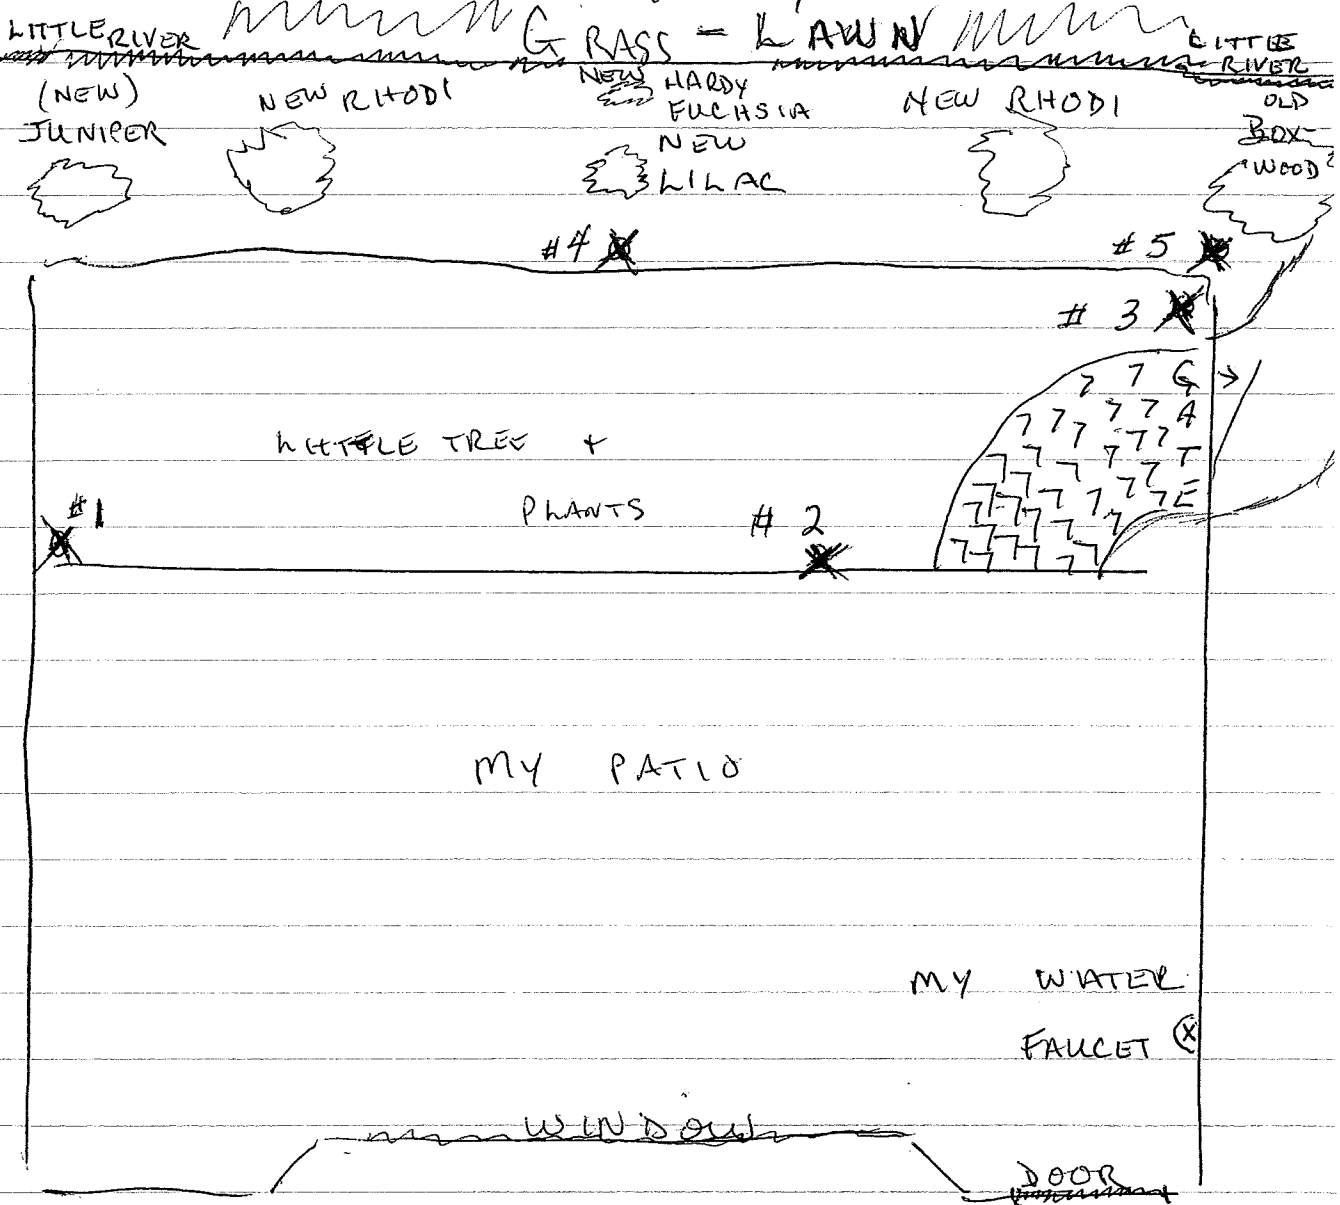 GRASS - LAWN
LITTLE RIVER
LITTLE
RIVER
(NEW)
JUNIPER
NEW RHODI
NEW HARDY
FUCHSIA
NEW
LILAC
NEW RHODI
OLD
BOX-
WOOD
#4
#5
#3
GATE
LITTLE TREE +
PLANTS
#1
#2
MY PATIO
MY WATER
FAUCET
WINDOW
DOOR